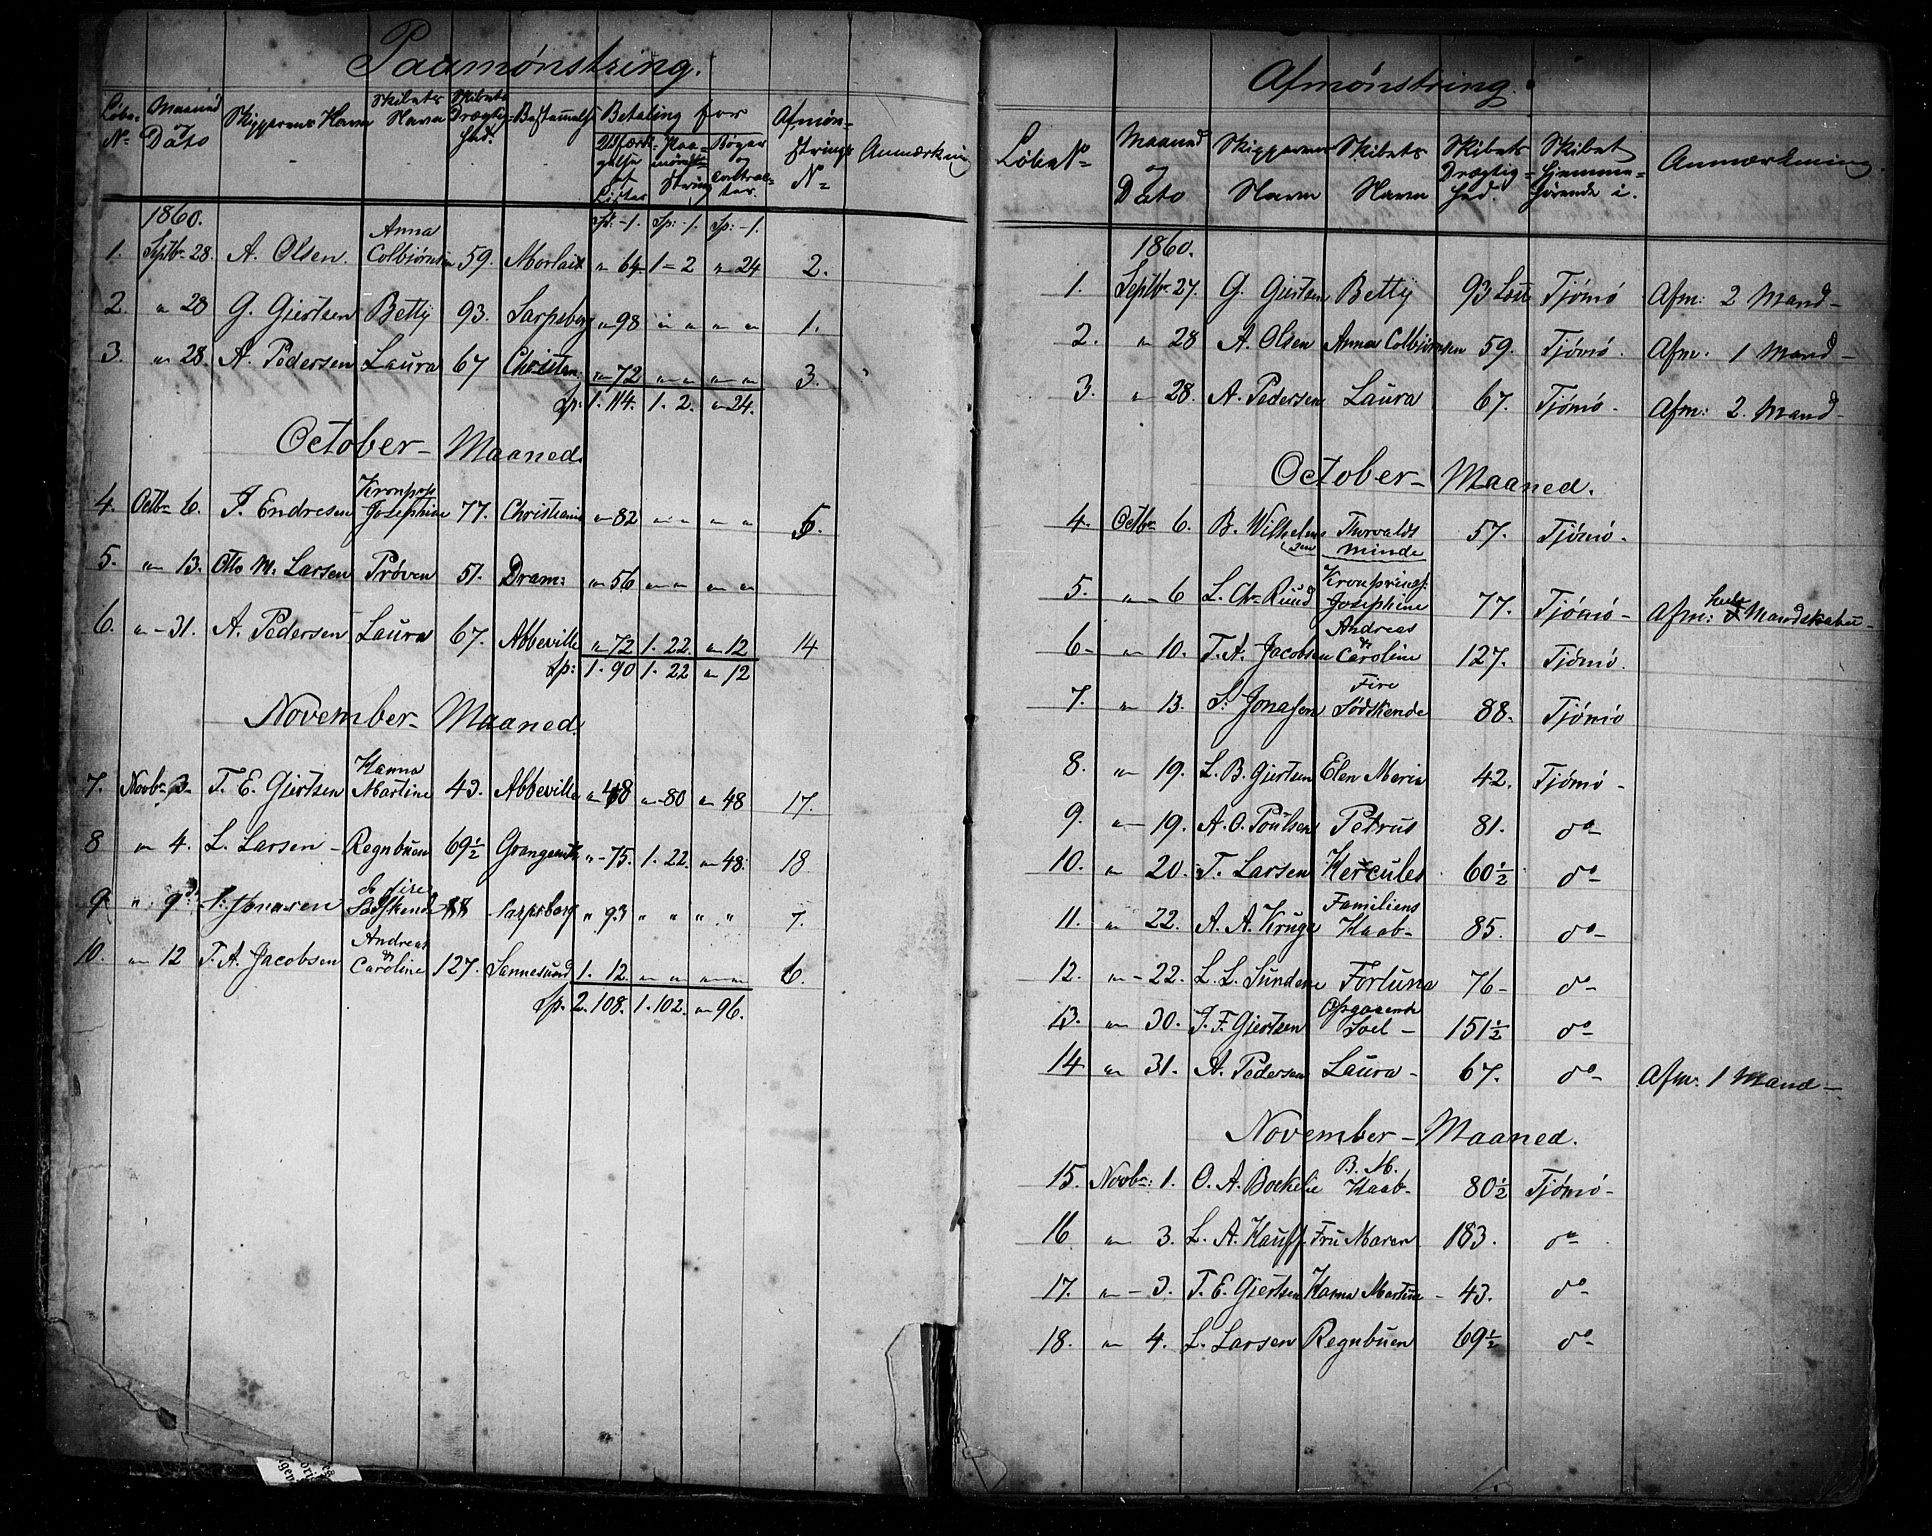 Paamønstring.
Løbe- No | Maaned & Dato | Skipperens Navn | Skibets Navn | Skibets Drægtig- hed. | Bestemmelse | Betaling for | Afmøn- strings No | Anmærkning
Udfærdi- gelse af Lister | Paa- mønst- string | Bøger og contrac- ter.
1860. | Sp: - 1. | Sp: - 1. | Sp: - 1.
1. Septbr 28. A. Olsen. Anna Colbjørnsen 59. Morlaix " 64 1 - 2 " 24 2.
2. " 28 G. Giertsen Betty 93. Sarpsborg " 98 " " " " 1.
3. " 28. A. Pedersen Laura 67 Christian: " 72 " " " " 3.
Sp: 1. 114. 1. 2. " 24.
October - Maaned.
4. Octbr 6. J. Endresen Kronprs Josephine 77. Christiania " 82 " " " " 5.
5. " 13. Otto M. Larsen Prøven 51. Dram: " 56 " " " "
6. " - 31. A. Pedersen Laura 67. Abbeville " 72 1. 22. " 12 14
Sp: 1. 90 1. 22 " 12
November - Maaned.
7. Novbr 3. T. E. Giertsen Hanna Martine 43. Abbeville " 48 " 80 " 48 17.
8 " 4. L. Larsen - Regnbuen 69½ Grangemth " 75. 1. 22. " 48. 18
9 " 9d. S. Jonasen de fire Sødskende 88 Sarpsborg " 93 " " " " 7.
10. " 12 T. A. Jacobsen Andreas & Caroline 127. Sannesund 1. 12. " " " " 6.
Sp. 2. 108. 1. 102. " 96.
Afmønstring.
Løbe No | Maaned & Dato | Skipperens Navn | Skibets Navn | Skibets Drægtig- hed. | Skibet Hjemme- hørende i. | Anmærkning
1860.
1. Septbr 27. G. Giertsen Betty 93 Læst Tjømø Afm: 2 Mand -
2. " 28 A. Olsen Anna Colbjørnsen 59. Tjømø. Afm: 1 Mand -
3. " 28. A. Pedersen Laura 67. Tjømø. Afm: 2. Mand -
October - Maaned.
4. Octbr 6. B. Wilhelm- sen Thorvalds minde 57. Tjømø.
5. " - 6 L. Chr Ruud Kronprinsf: Josephine 77. Tjømø - Afm: hele Mandskabet -
6 - " 10. T. A. Jacobsen Andreas & Caroline 127. Tjømø.
7. " 13. S. Jonasen Fire Sødskende 88. Tjømø
8. " 19. L. B. Giertsen Elen Marie 42. Tjømø -
9. " - 19. A. O. Poulsen Petrus 81. do -
10. " 20. T. Larsen Hercules 60½ do -
11. " 22. A. A. Kruge Familiens Haab - 85. do -
12. " - 22. L. L. Sundene Fortuna 76 - do -
13. " 30. J. F. Giertsen Opgaaende Soel - 151½ do -
14 " 31. A. Pedersen Laura - 67. do - Afm. 1 Mand -
November - Maaned.
15. Novbr: 1. O. A. Bækelie B. M. Haab - 80½ Tjømø -
16 " 3. L. A. Hauff Fru Maren 183. do -
17. " - 3. T. E. Giertsen Hanna Martine - 43. do -
18. " 4. L. Larsen Regnbuen 69½ do -